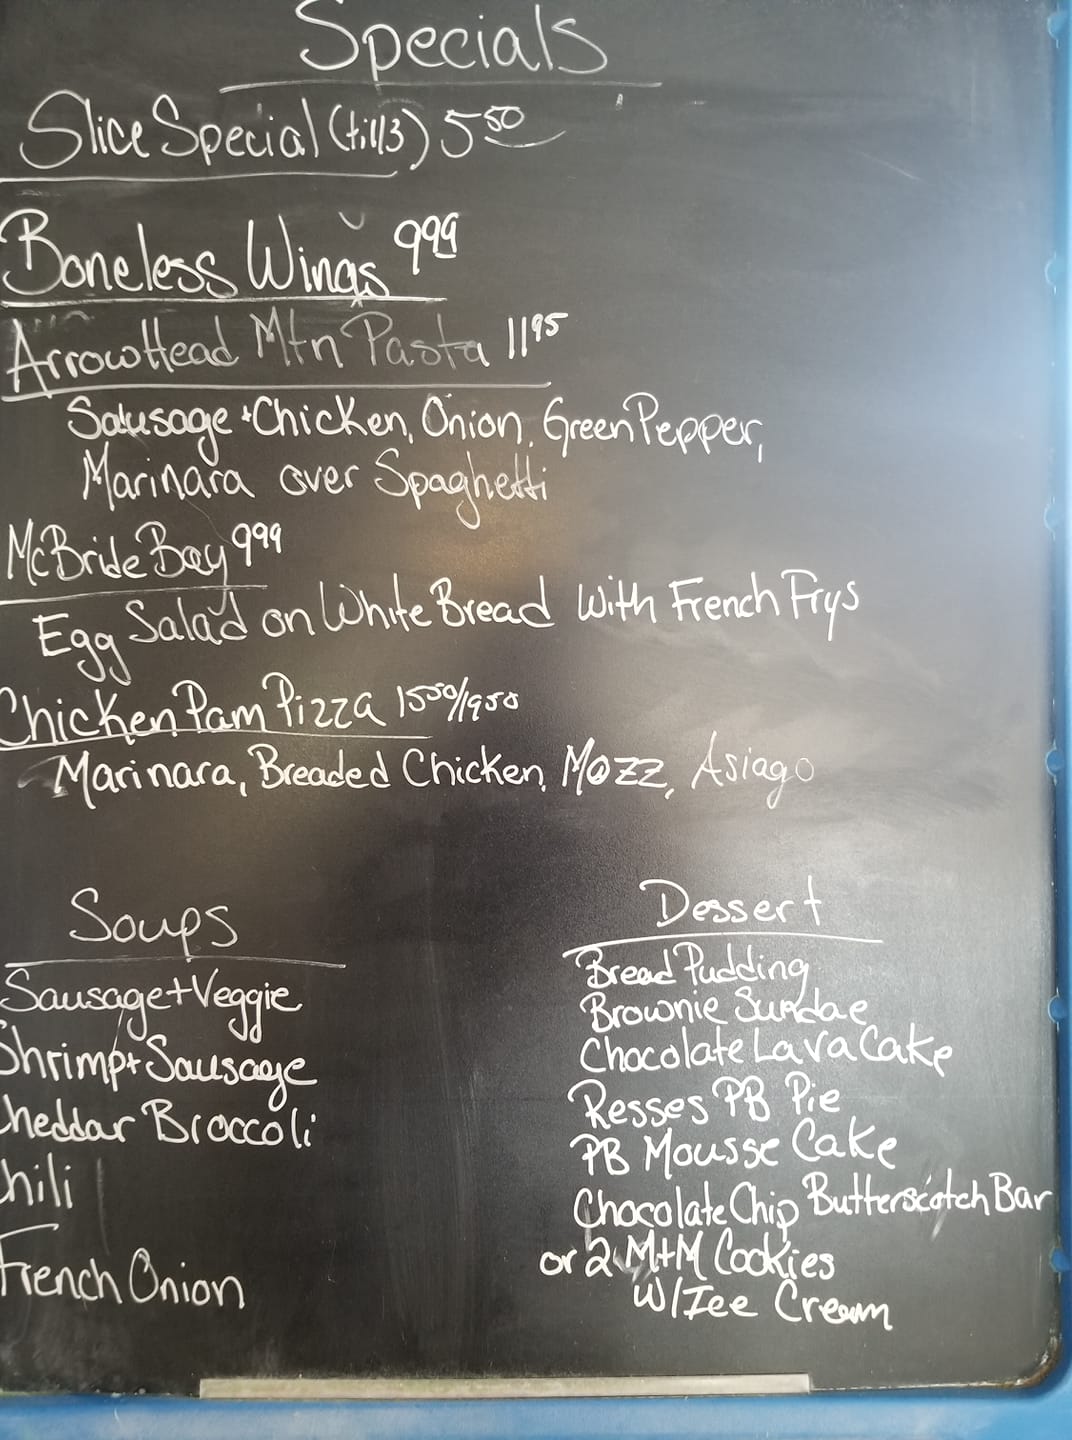 Specials
Slice Special (till 3) 5 50
Boneless Wings 9 99
ArrowHead Mtn Pasta 11 95
Sausage + Chicken, Onion, Green Pepper,
Marinara over Spaghetti
McBride Bay 9 99
Egg Salad on White Bread with French Frys
Chicken Pam Pizza 15 50/19 50
Marinara, Breaded Chicken, Mozz, Asiago
Soups
Sausage + Veggie
Shrimp + Sausage
Cheddar Broccoli
Chili
French Onion
Dessert
Bread Pudding
Brownie Sundae
Chocolate Lava Cake
Resses PB Pie
PB Mousse Cake
Chocolate Chip Butterscotch Bar
or 2 M+M Cookies
W/Ice Cream